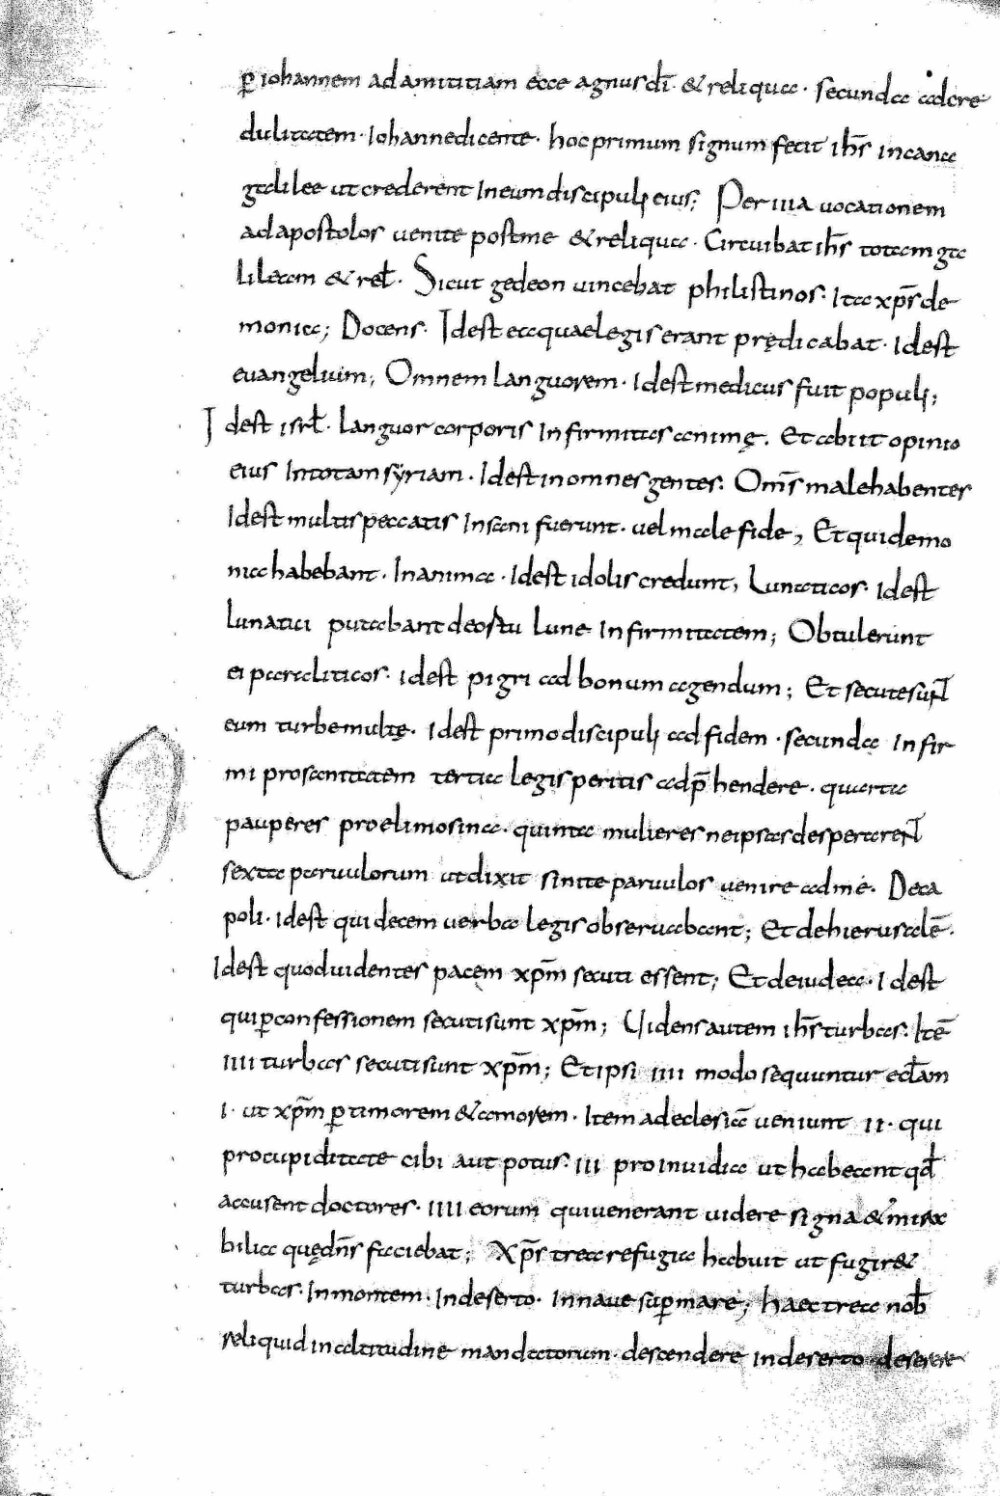 ꝑ iohannem ad amititiam ecce agnus dī · & reliqua · secunda ad cre
dulitatem · Iohanne dicente · hoc primum signum fecit ihs̄ in cana
galilee ut crederent In eum discipuli eius; Per IIIA uocationem
ad apostolos uenite post me & reliqua · Circuibat ihs̄ totam ga
lileam & rel̄ · Sicut gedeon uincebat philistinos · Ita xp̄s de
monia; Docens · Idest ea quae legis erant prędicabat · Idest
euangelium; Omnem languorem · Idest medicus fuit populi;
Idest isrl̄ · languor corporis Infirmitas animę . Et abiit opinio
eius In totam syriam · Idest in omnes gentes . Om̄s male habentes
Idest multis peccatis Insani fuerunt · uel male fide, Et qui demo
nia habebant · In anima · Idest idolis credunt, Lunaticos · Idest
lunatici putabant de ostu lune Infirmitatem; Obtulerunt
ei paraliticos · idest pigri ad bonum agendum; Et secute sunt
eum turbe multę · Idest primo discipuli ad fidem · secunda Infir
mi pro sanitatem tertia legis peritis ad p̄hendere · quarta
pauperes pro elimosina · quinta mulieres ne ipsas desperarent
sexta paruulorum ut dixit sinite paruulos uenire ad me · Deca
poli · idest qui decem uerba legis obseruabant; Et de hierusalē ·
Idest quod uidentes pacem xp̄m secuti essent; Et de iudea · Idest
qui ꝑ confessionem secuti sunt xp̄m; Uidens autem ihs̄ turbas · Itē
IIII turbas secuti sunt xp̄m; Et ipsi IIII modo sequuntur eclām
I · ut xp̄m ꝑ timorem & amorem · Item ad eclesiā ueniunt II · qui
pro cupiditate cibi aut potus · III pro inuidia ut habeant qd̄
accusent doctores · IIII eorum qui uenerant uidere signa & mira
bilia quę dn̄s faciebat; Xp̄s trea refugia habuit ut fugir&
turbas · In montem · In deserto · In naue suꝑ mare; haec trea nob̄
reliquid in altitudine mandatorum · descendere in deserto deserere